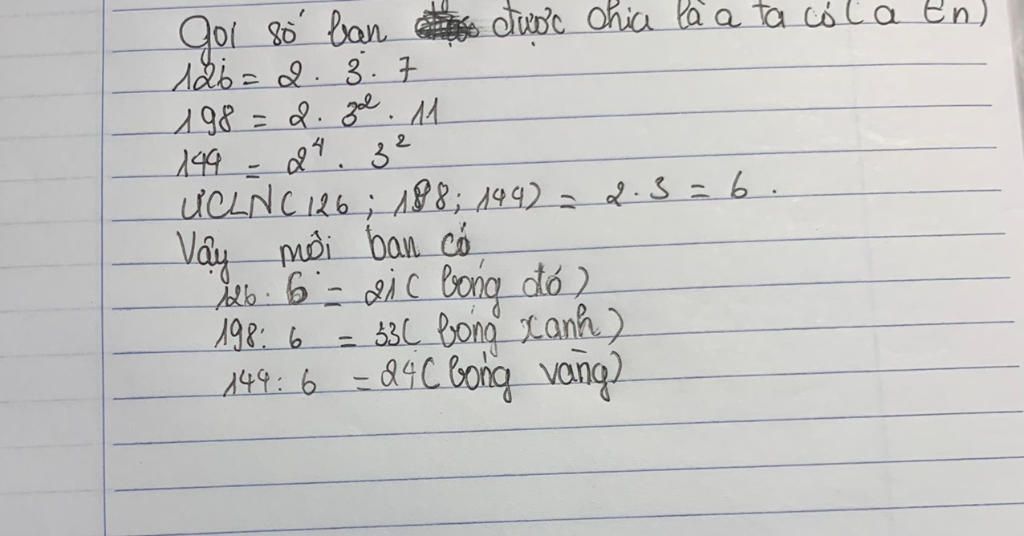 Gọi số bạn được chia là a ta có (a ∈ n)
126 = 2 . 3 . 7
198 = 2 . 3² . 11
144 = 2⁴ . 3²
ƯCLN(126 ; 198 ; 144) = 2 . 3 = 6 .
Vậy mỗi bạn có
126 : 6 = 21 ( bóng đỏ )
198 : 6 = 33 ( bóng xanh )
144 : 6 = 24 ( bóng vàng )